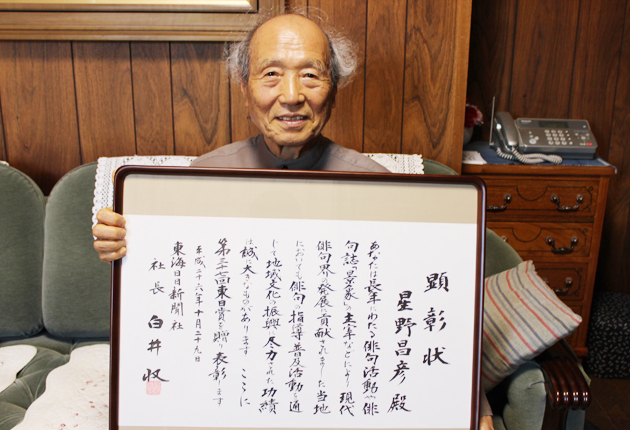 顕彰状
星野昌彦 殿
あなたは長年にわたる俳句活動や俳
句誌「景象」の主宰などにより 現代
俳句界の発展に貢献されました 当地
においても俳句の指導 普及活動を通
じて地域文化の振興に尽力された功績
は誠に大きなものがあります ここに
第三十一回東日賞を贈り 表彰します
平成二十六年十月二十九日
東海日日新聞社
社長 白井 収